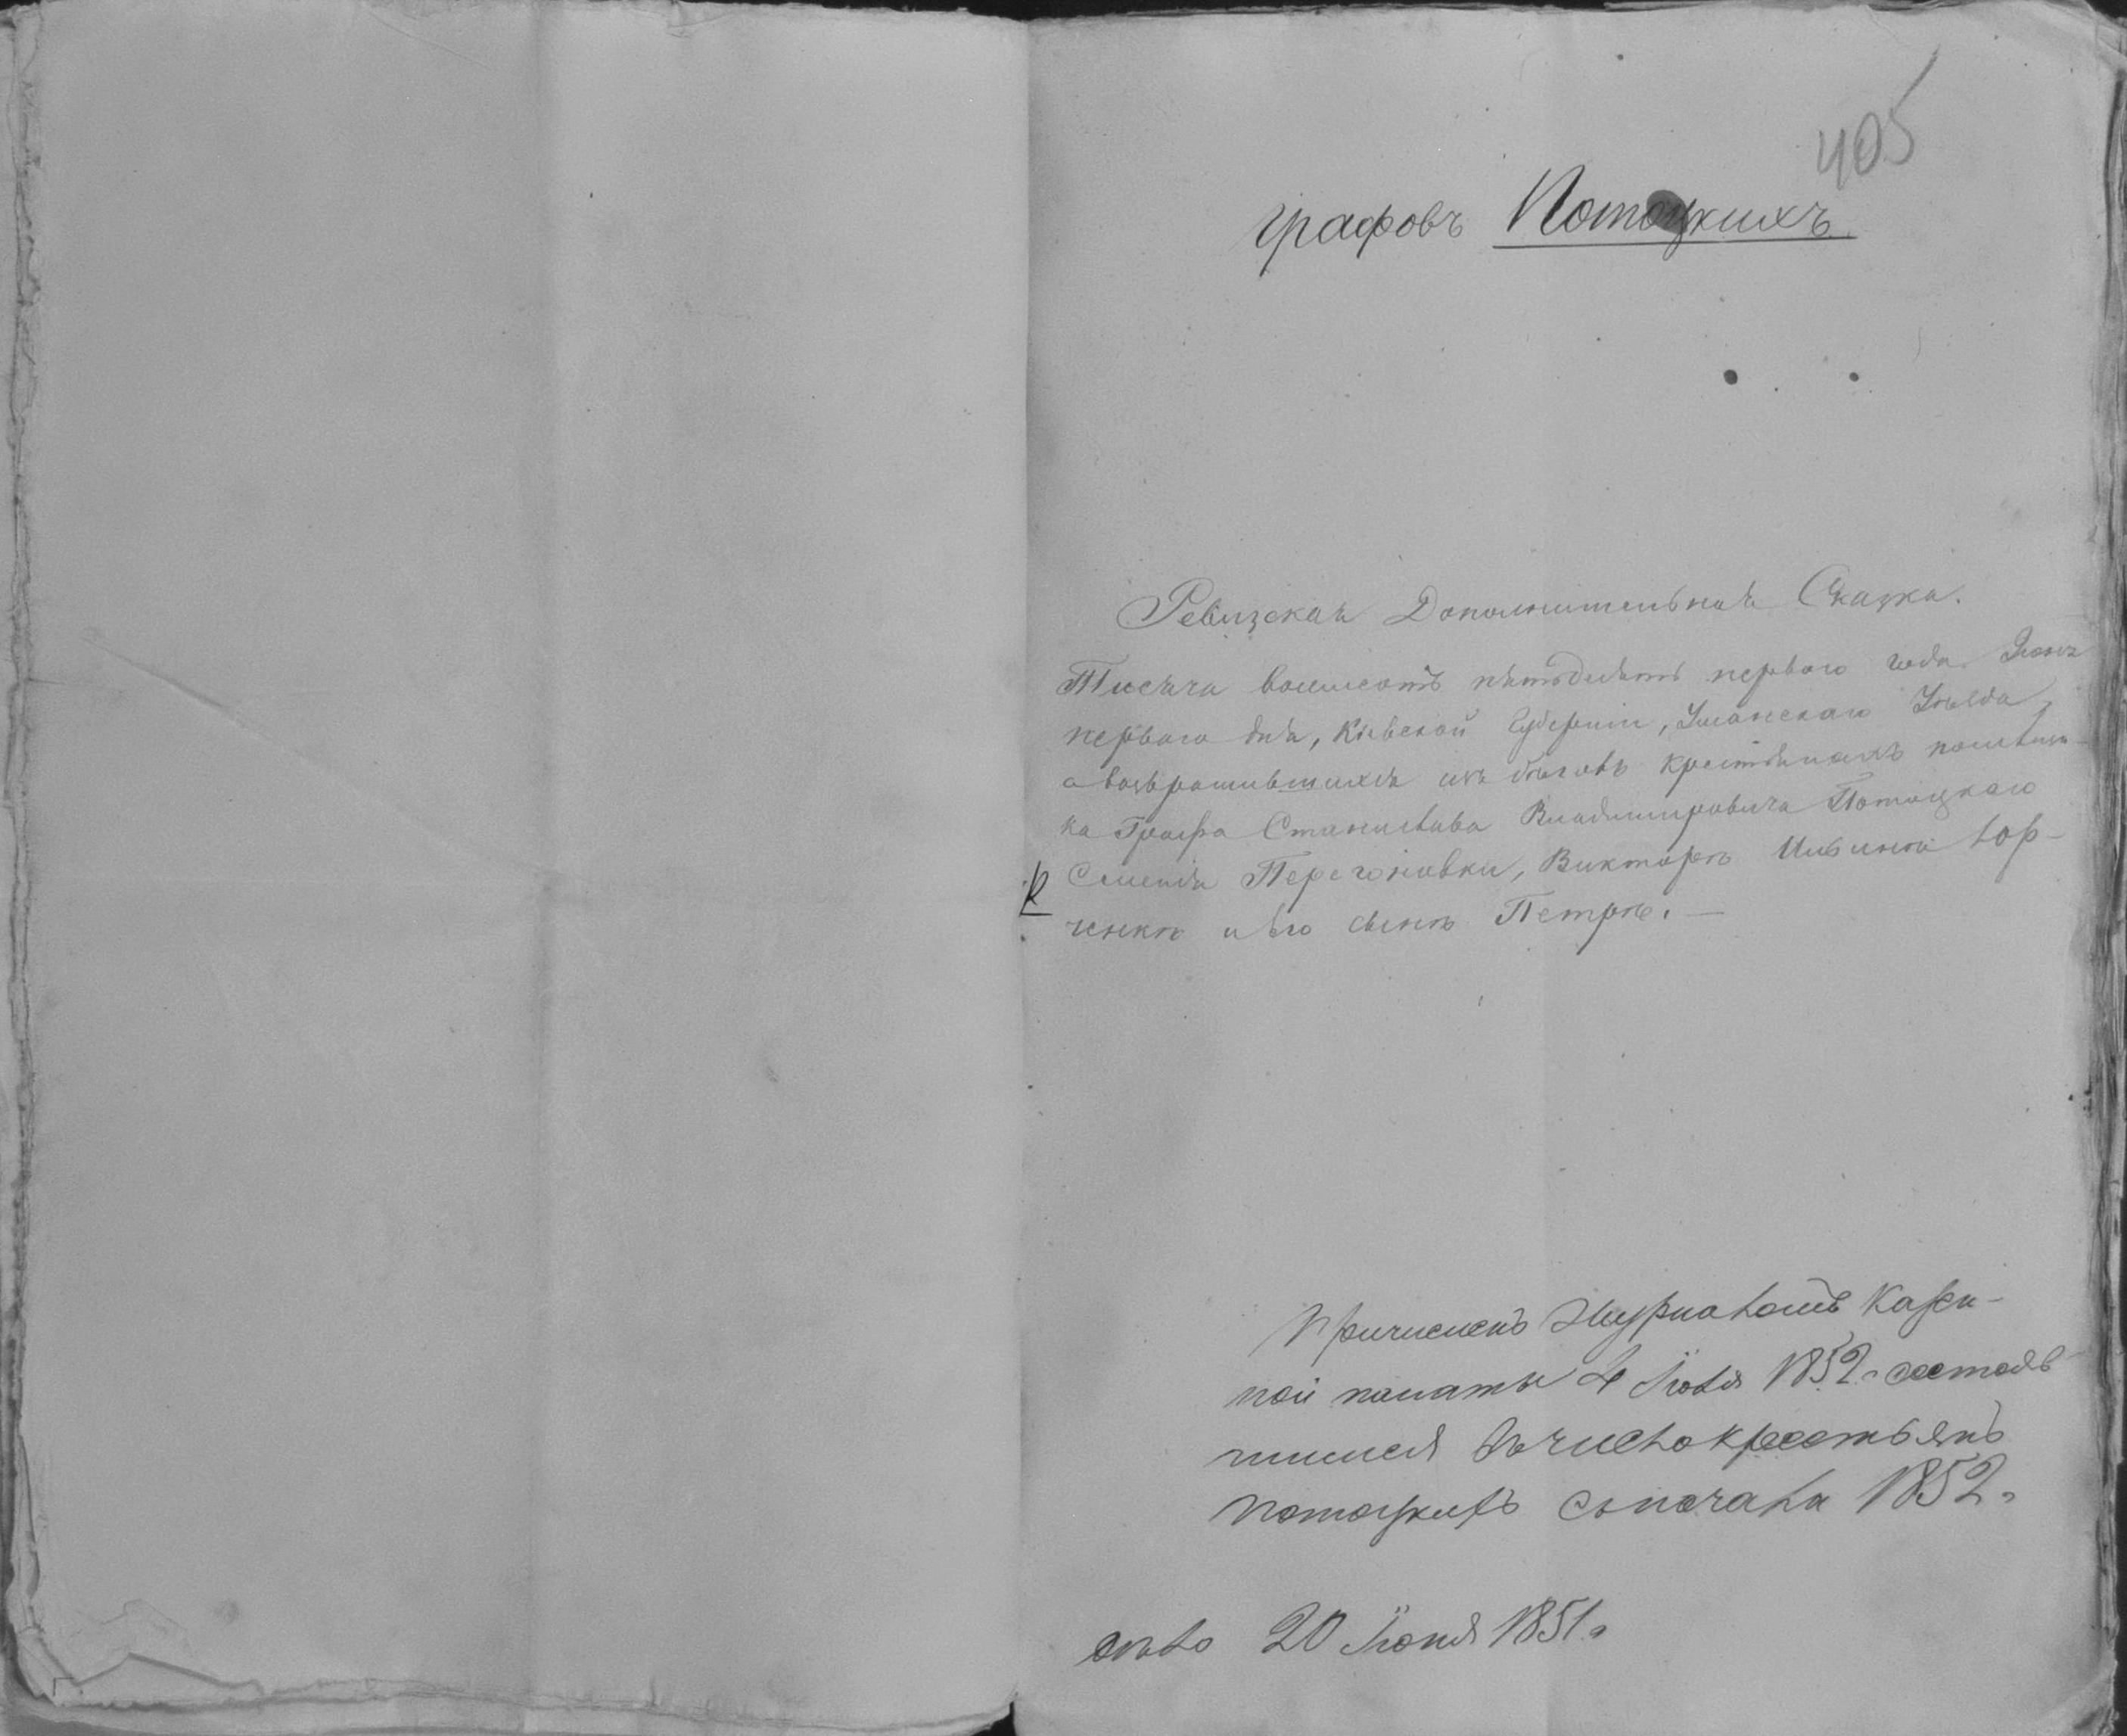 405
графовъ Потоцкихъ
Ревизская Дополнительная Сказка.
Тысяча восемсотъ пятьдесятъ первого года Июня
первого дня, Кіевской Губерніи, Уманскаго Уѣзда,
о возвратившихся изъ бѣговъ крестьянахъ помѣщи-
ка Графа Станислава Владимировича Потоцкаго
Селенія Перегоновки, Викторъ
ченко и его сынъ Петръ. —
Причисленъ Журналомъ Казен-
ной палаты 4 Іюля 1852 г. состояв
шимся въ число крестьянъ
Потоцкихъ съ начала 1852 г.
20 Іюня 1851 г.